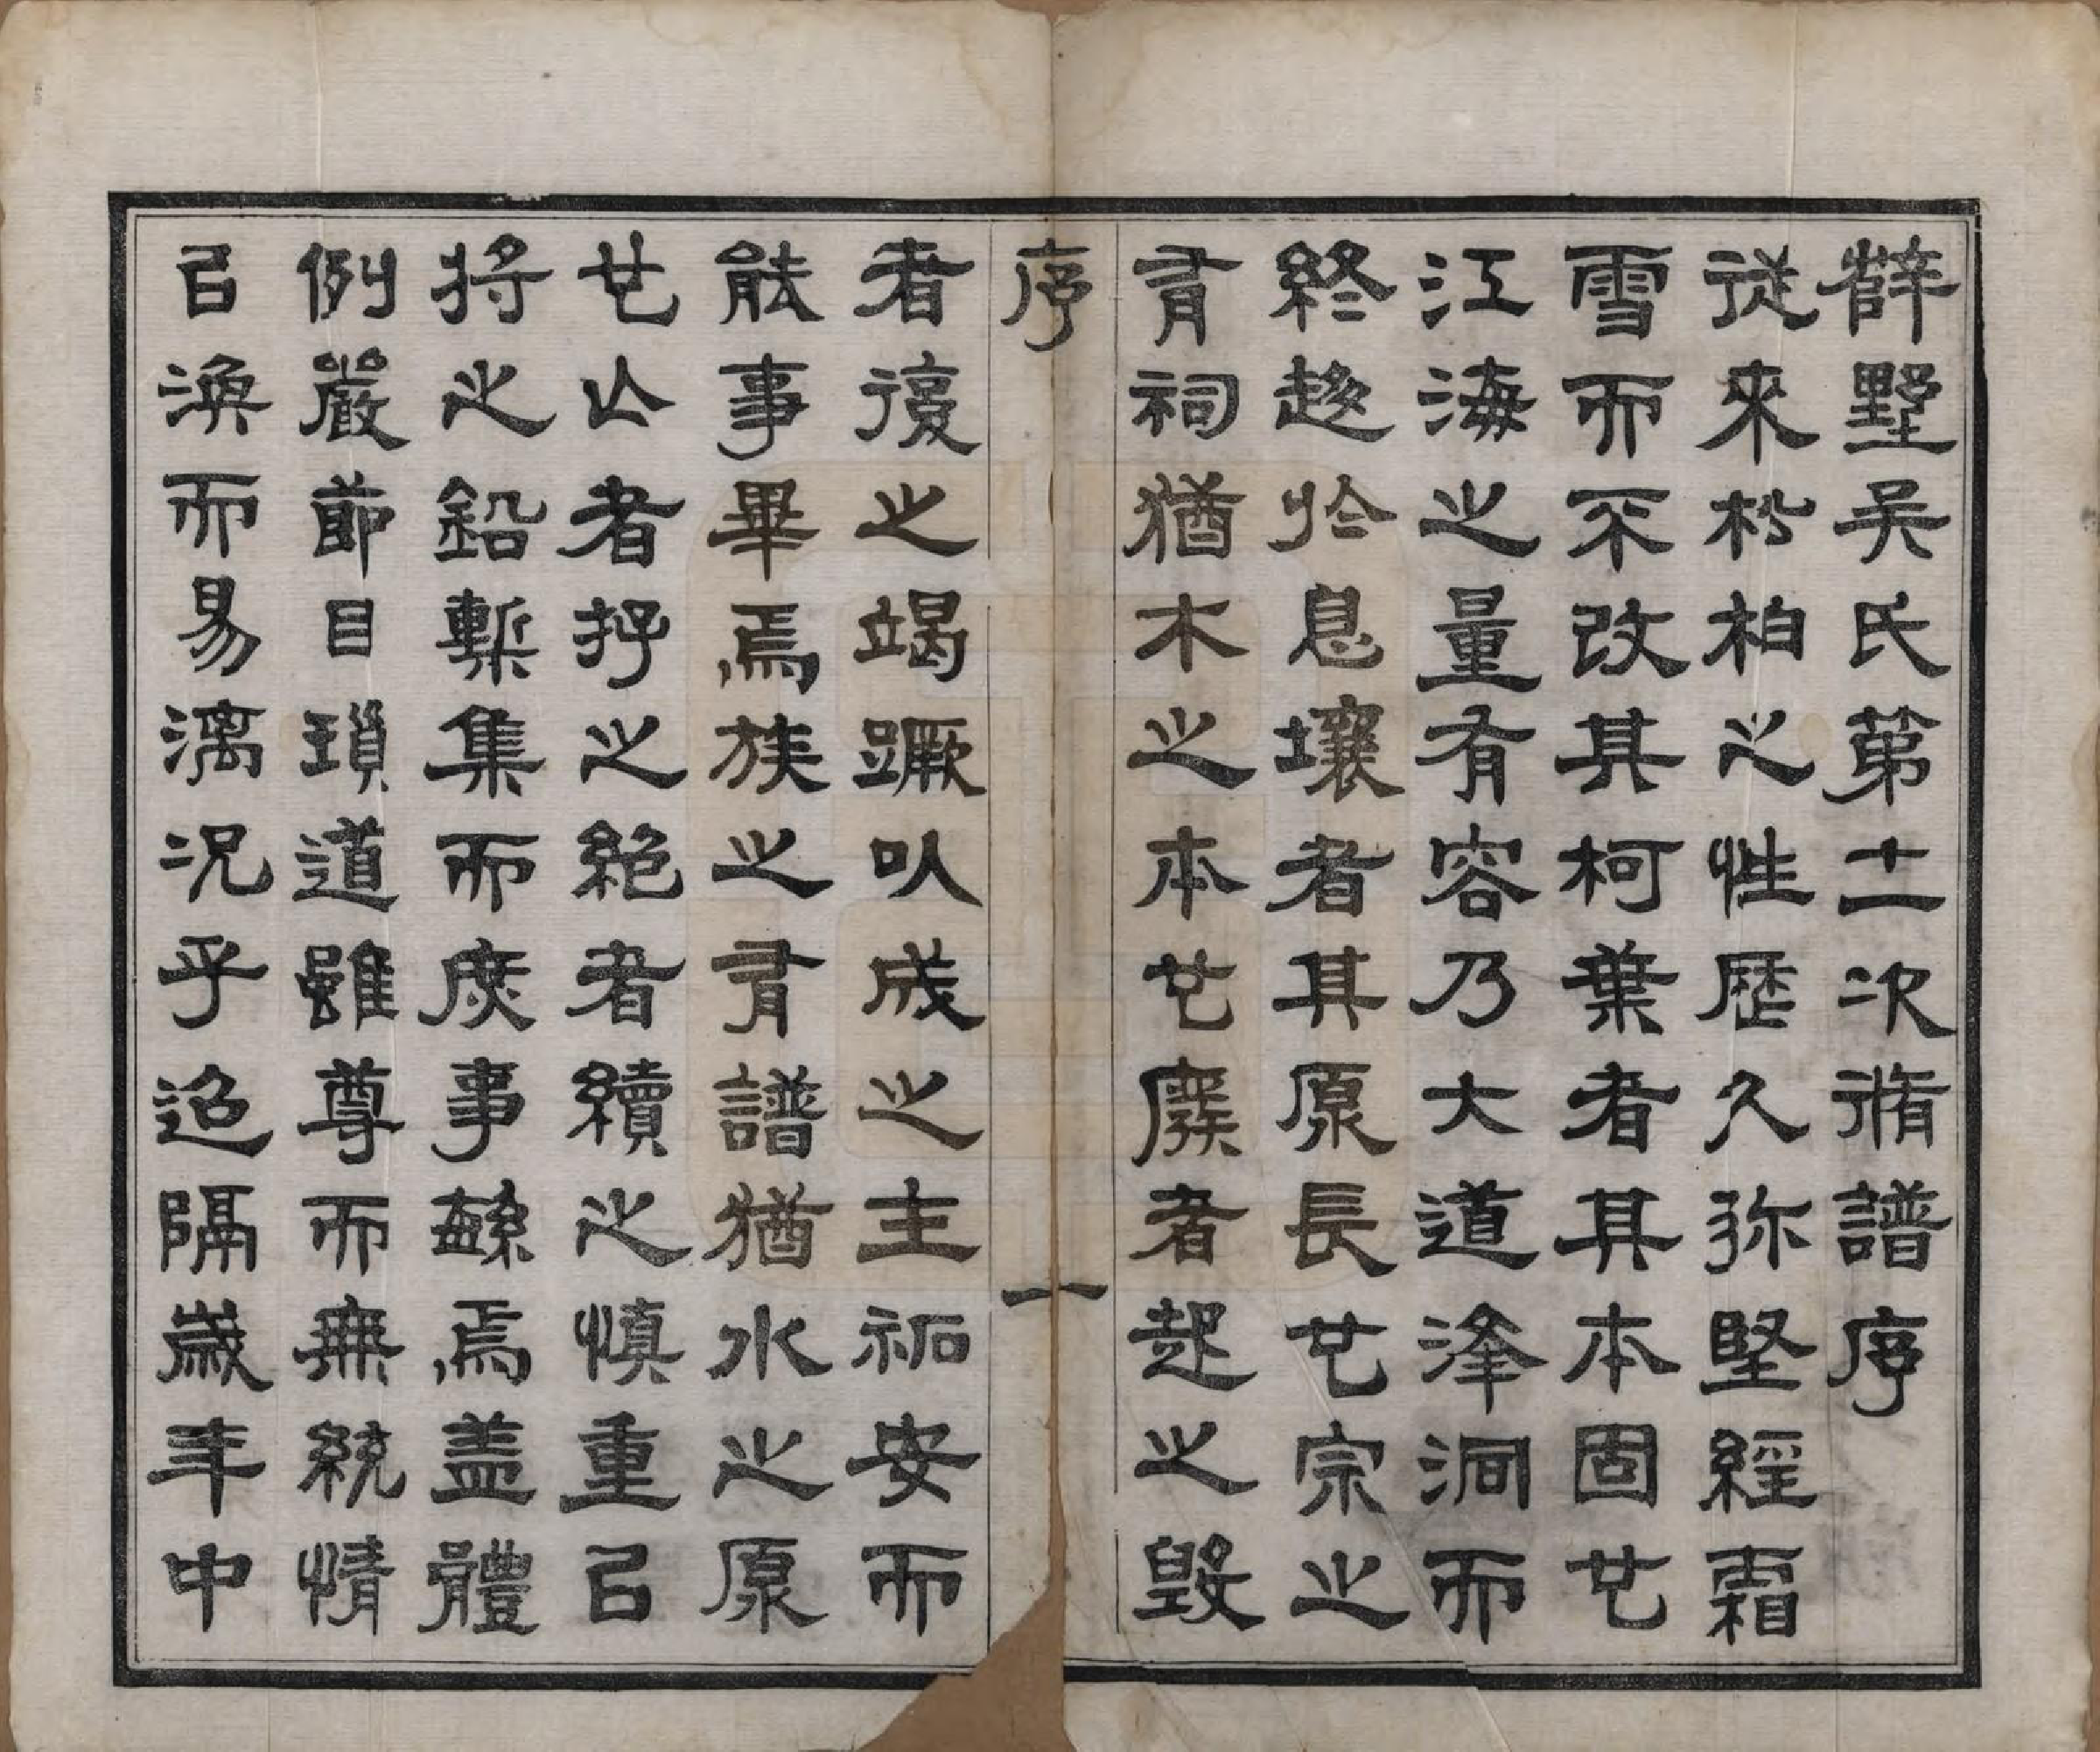 薛墅吳氏第十二次脩譜序
從來松柏之性歷久彌堅經霜
雪而不改其柯葉者其本固也
江海之量有容乃大道洚洞而
終趍於息壤者其原長也宗之
有祠猶木之本也廢者起之毀
序
一
者復之竭蹶以成之主祏安而
能事畢焉族之有譜猶水之原
也止者抒之絶者續之慎重以
將之鉛槧集而庶事繇焉蓋體
例嚴節目瑣道雖尊而無統情
以渙而易漓况乎迢隔歲年中